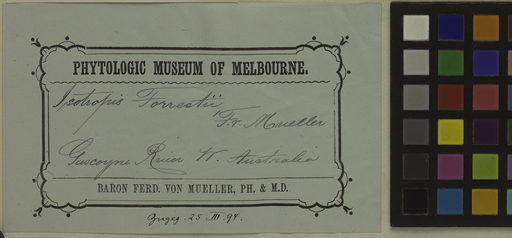 PHYTOLOGIC MUSEUM OF MELBOURNE.
Isotropis Forrestii
F.v. Mueller
Gascoyne River W. Australia
BARON FERD. VON MUELLER, PH. & M.D.
25 III. 94.